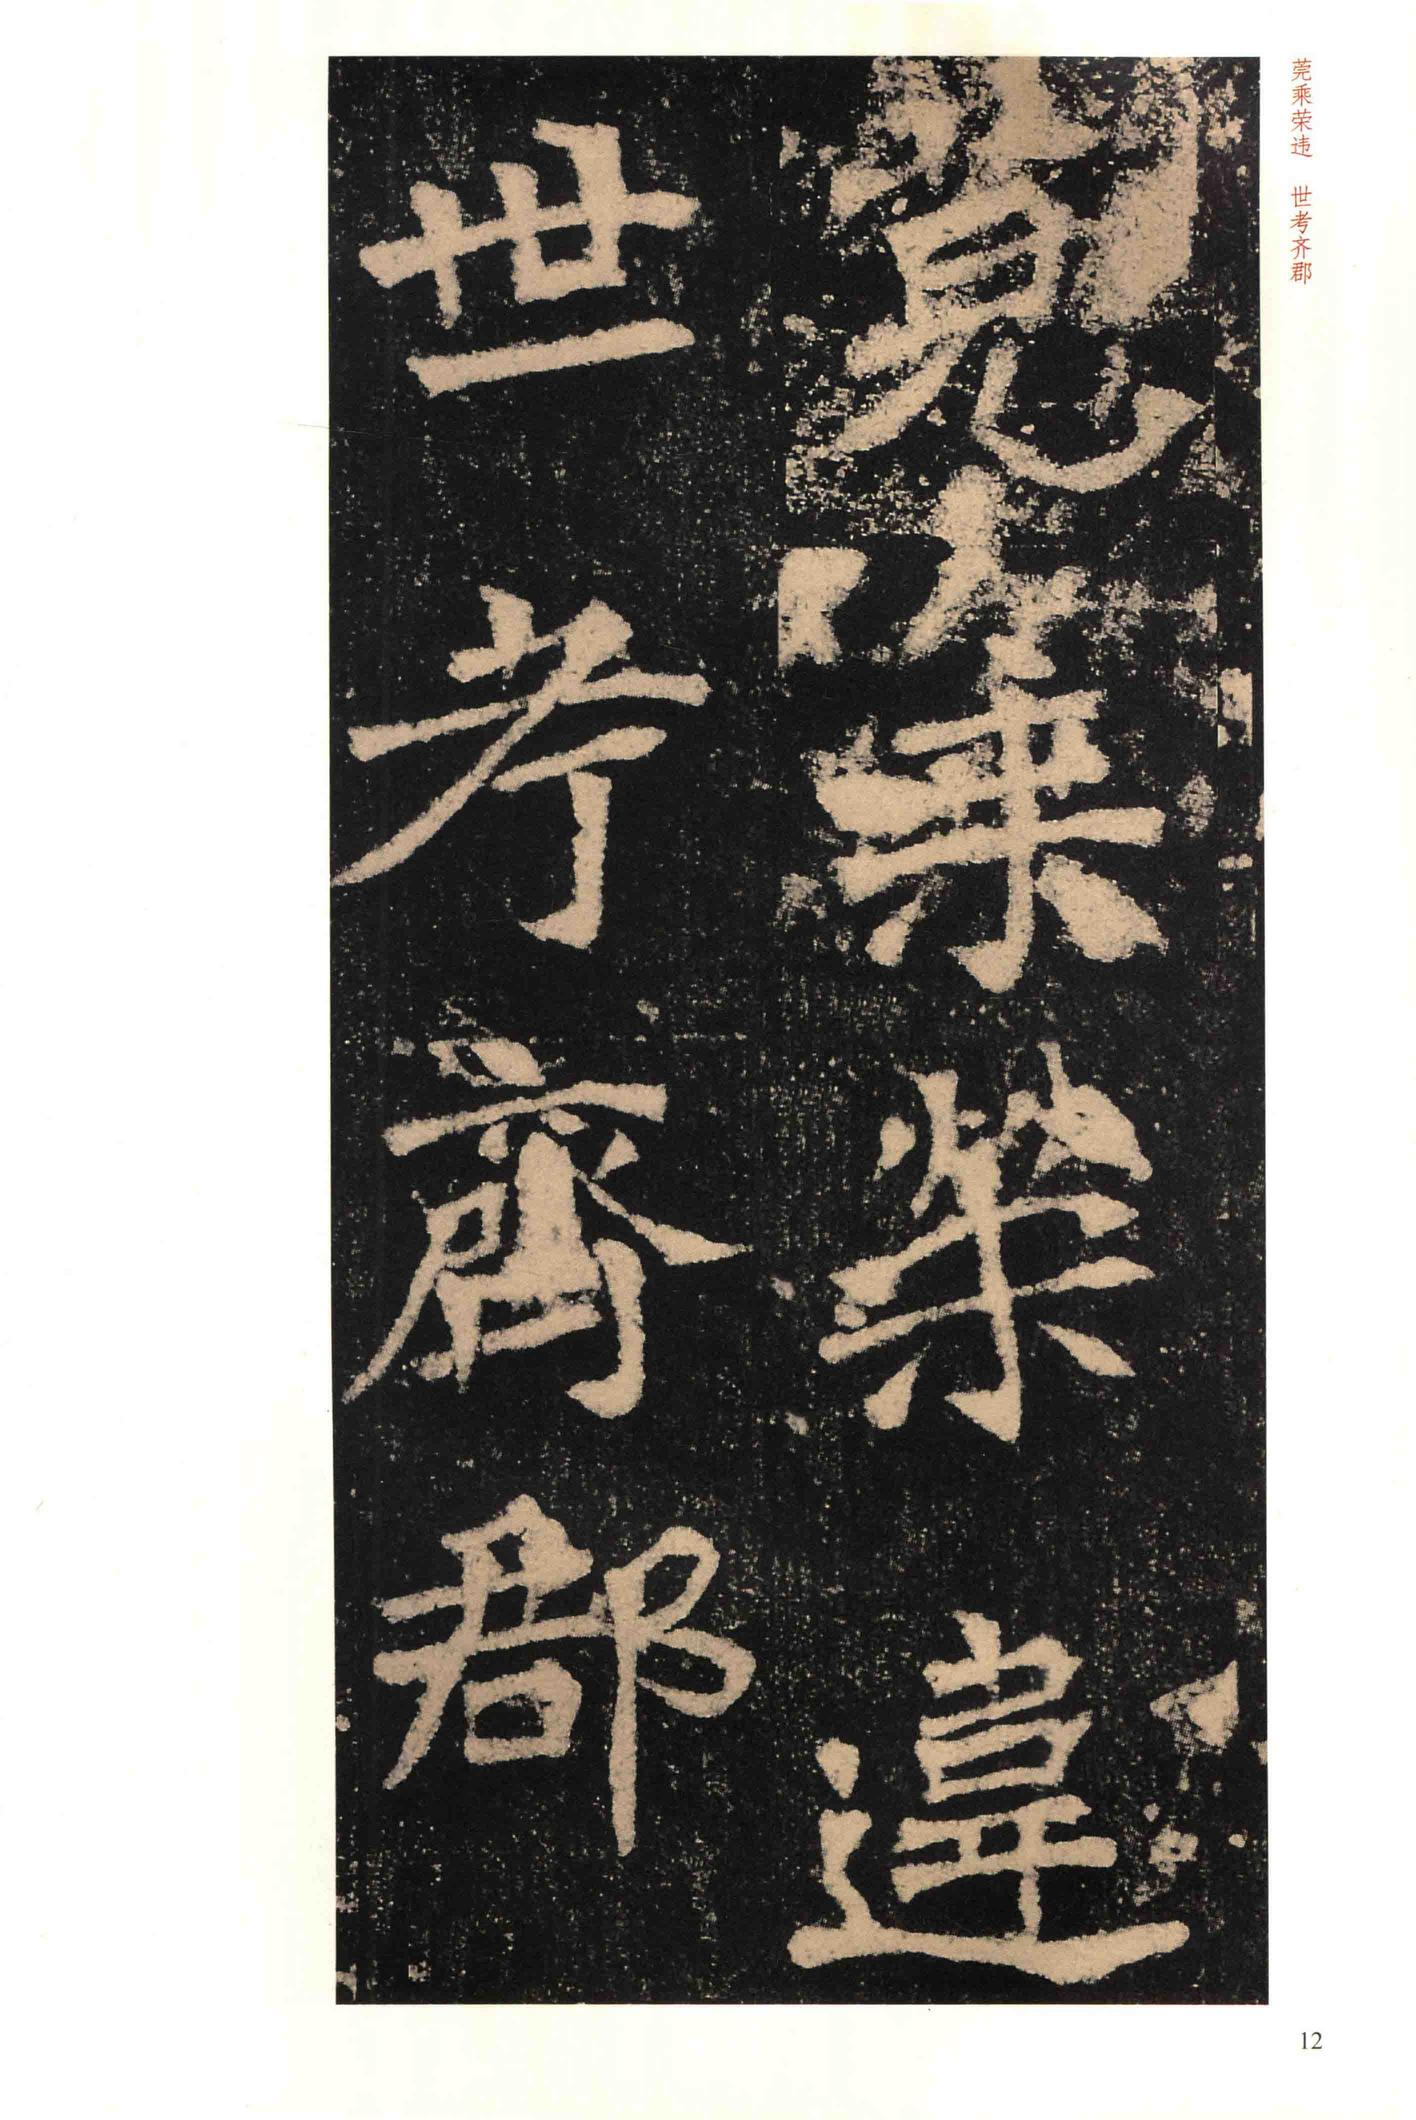 莞乘荣违　世考齐郡
莞乘榮違
世考齊郡
12